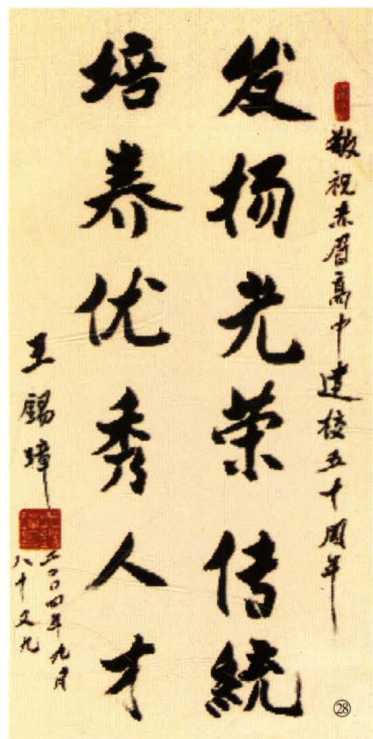 敬祝赤眉高中建校五十周年
发扬光荣传统
培养优秀人才
王锡璋
二〇〇四年九月
八十又九
㉘